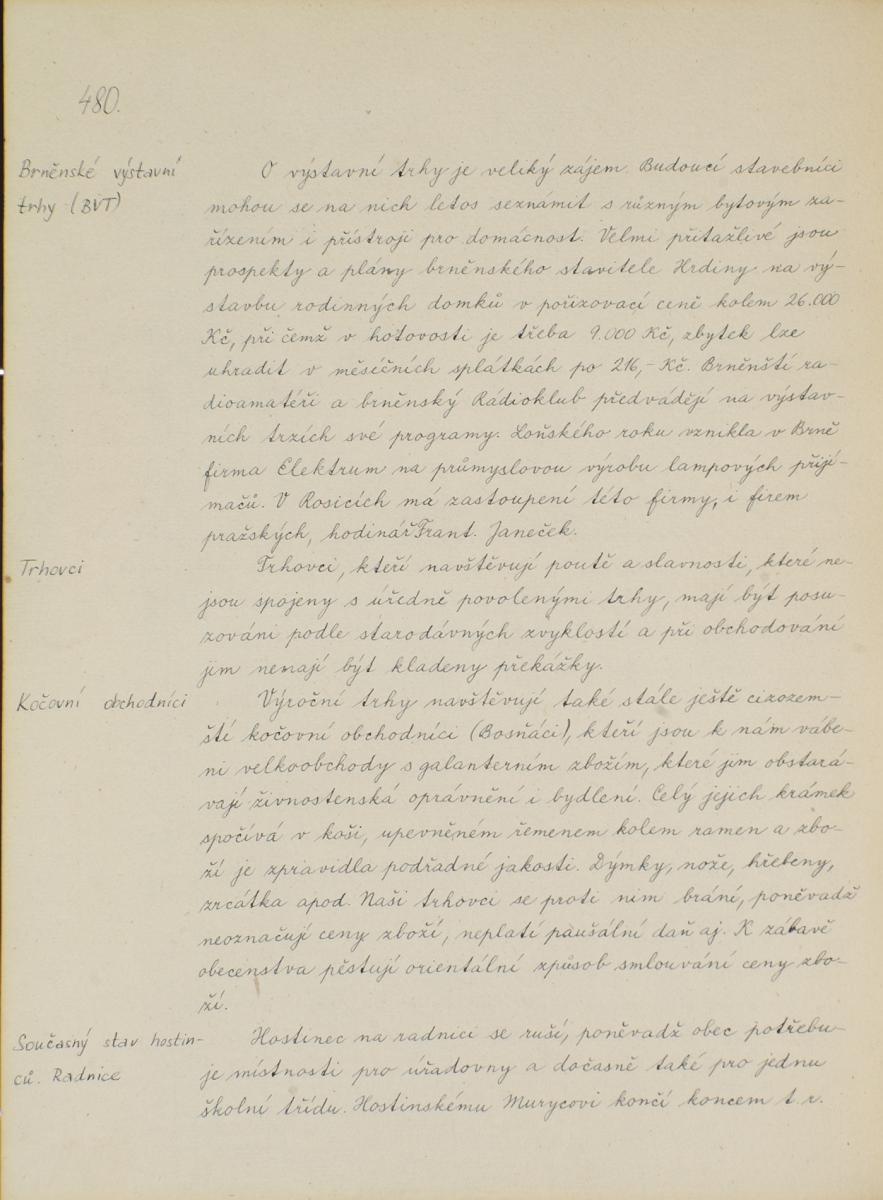 480.
Brněnské výstavní
trhy (BVT)
O výstavní trhy je veliký zájem. Budoucí stavebníci
mohou se na nich letos seznámit s různým bytovým za-
řízením i přístroji pro domácnost. Velmi přitažlivé jsou
prospekty a plány brněnského stavitele Hrdiny na vý-
stavbu rodinných domků v pořizovací ceně kolem 26.000
Kč, při čemž v hotovosti je třeba 9.000 Kč, zbytek lze
uhradit v měsíčních splátkách po 216,- Kč. Brněnští ra-
dioamatéři a brněnský Rádioklub předvádějí na výstav-
ních trzích své programy. Loňského roku vznikla v Brně
firma Elektrum na průmyslovou výrobu lampových přijí-
mačů. V Rosicích má zastoupení této firmy, i firem
pražských, hodinář Frant. Janeček.
Trhovci
Trhovci, kteří navštěvují poutě a slavnosti, které ne-
jsou spojeny s úředně povolenými trhy, mají být posu-
zováni podle starodávných zvyklostí a při obchodování
jim nemají být kladeny překážky.
Kočovní obchodníci
Výroční trhy navštěvují také stále ještě cizozem-
ští kočovní obchodníci (Bosňáci), kteří jsou k nám vábe-
ni velkoobchody s galanterním zbožím, které jim obstará-
vají živnostenská oprávnění i bydlení. Celý jejich krámek
spočívá v koši, upevněném řemenem kolem ramen a zbo-
ží je zpravidla podřadné jakosti. Dýmky, nože, hřebeny,
zrcátka apod. Naši trhovci se proti nim brání, poněvadž
neoznačují ceny zboží, neplatí paušální daň aj. K zábavě
obecenstva pěstují orientální způsob smlouvání ceny zbo-
ží.
Současný stav hostin-
ců. Radnice
Hostinec na radnici se ruší, poněvadž obec potřebu-
je místnosti pro úřadovny a dočasně také pro jednu
školní třídu. Hostinskému Murycovi končí koncem t. r.